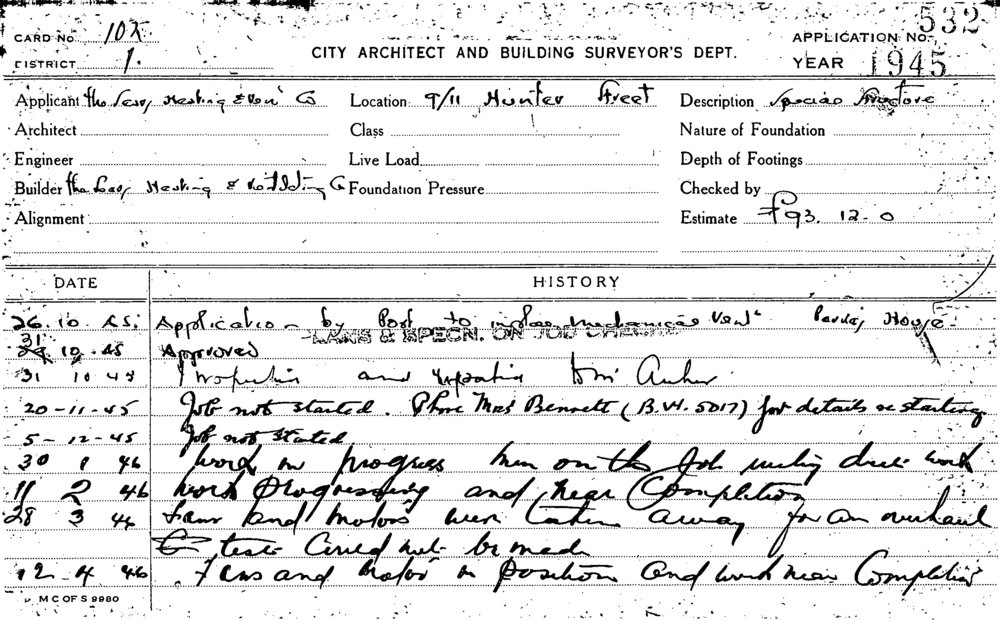 CARD No 105
DISTRICT 1.
CITY ARCHITECT AND BUILDING SURVEYOR'S DEPT.
532
APPLICATION No.
YEAR 1945
Applicant the Heating & Vent Co Location 9/11 Hunter Street Description Special Structure
Architect Class Nature of Foundation
Engineer Live Load Depth of Footings
Builder the Heating & Co Foundation Pressure Checked by
Alignment Estimate £93. 12. 0
DATE HISTORY
26. 10. 45. Application by Post to mechanical vent House
PLANS & SPECN. ON JOB CHECKED
31 10 45 Approved
31 10 45 and to Mr
20-11-45 Job not started. Phone Mrs Bennett (B.W. 5017) for details re starting
5-12-45 Job not started
30 1 46 Work in progress men on the Job duct work
11 2 46 Work progressing and near Completion
28 3 46 Fans and Motors were taken away for an overhaul
test Could not be made
12 4 46 Fans and Motors in position and work near Completion
M C OF S 9980